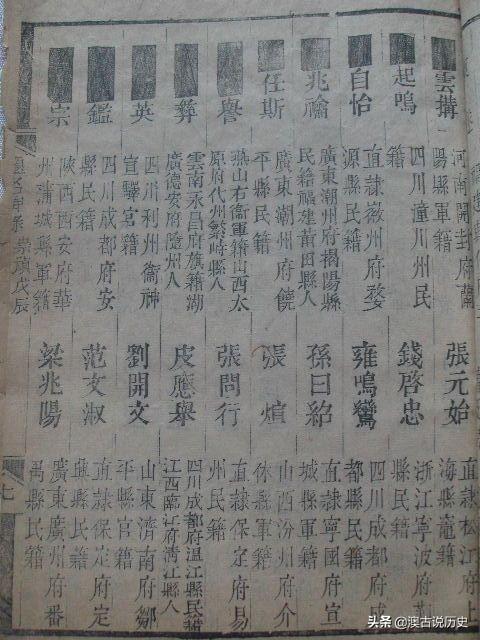 雲搆
河南開封府蘭
陽縣軍籍
起鳴
四川潼川州民
籍
自怡
直隷徽州府婺
源縣民籍
兆禴
廣東潮州府揭陽縣
民籍福建莆田縣人
任斯
廣東潮州府饒
平縣民籍
譽
燕山右衞軍籍山西太
原府代州繁峙縣人
彝
雲南永昌府旗籍湖
廣德安府隨州人
英
四川利州衞神
宣驛官籍
鑑
四川成都府安
縣民籍
宗
陝西西安府華
州蒲城縣軍籍
崇禎戊辰
張元始
直隷松江府上
海縣竈籍
錢啓忠
浙江寧波府鄞
縣民籍
雍鳴鸞
四川成都府成
都縣民籍
孫曰紹
直隷寧國府宣
城縣軍籍
張煊
山西汾州府介
休縣軍籍
張問行
直隷保定府易
州民籍
皮應舉
四川成都府溫江縣民籍
江西臨江府清江縣人
劉開文
山東濟南府鄒
平縣官籍
范文淑
直隷保定府定
興縣民籍
梁兆陽
廣東廣州府番
禺縣民籍
七
头条 @澳古说历史